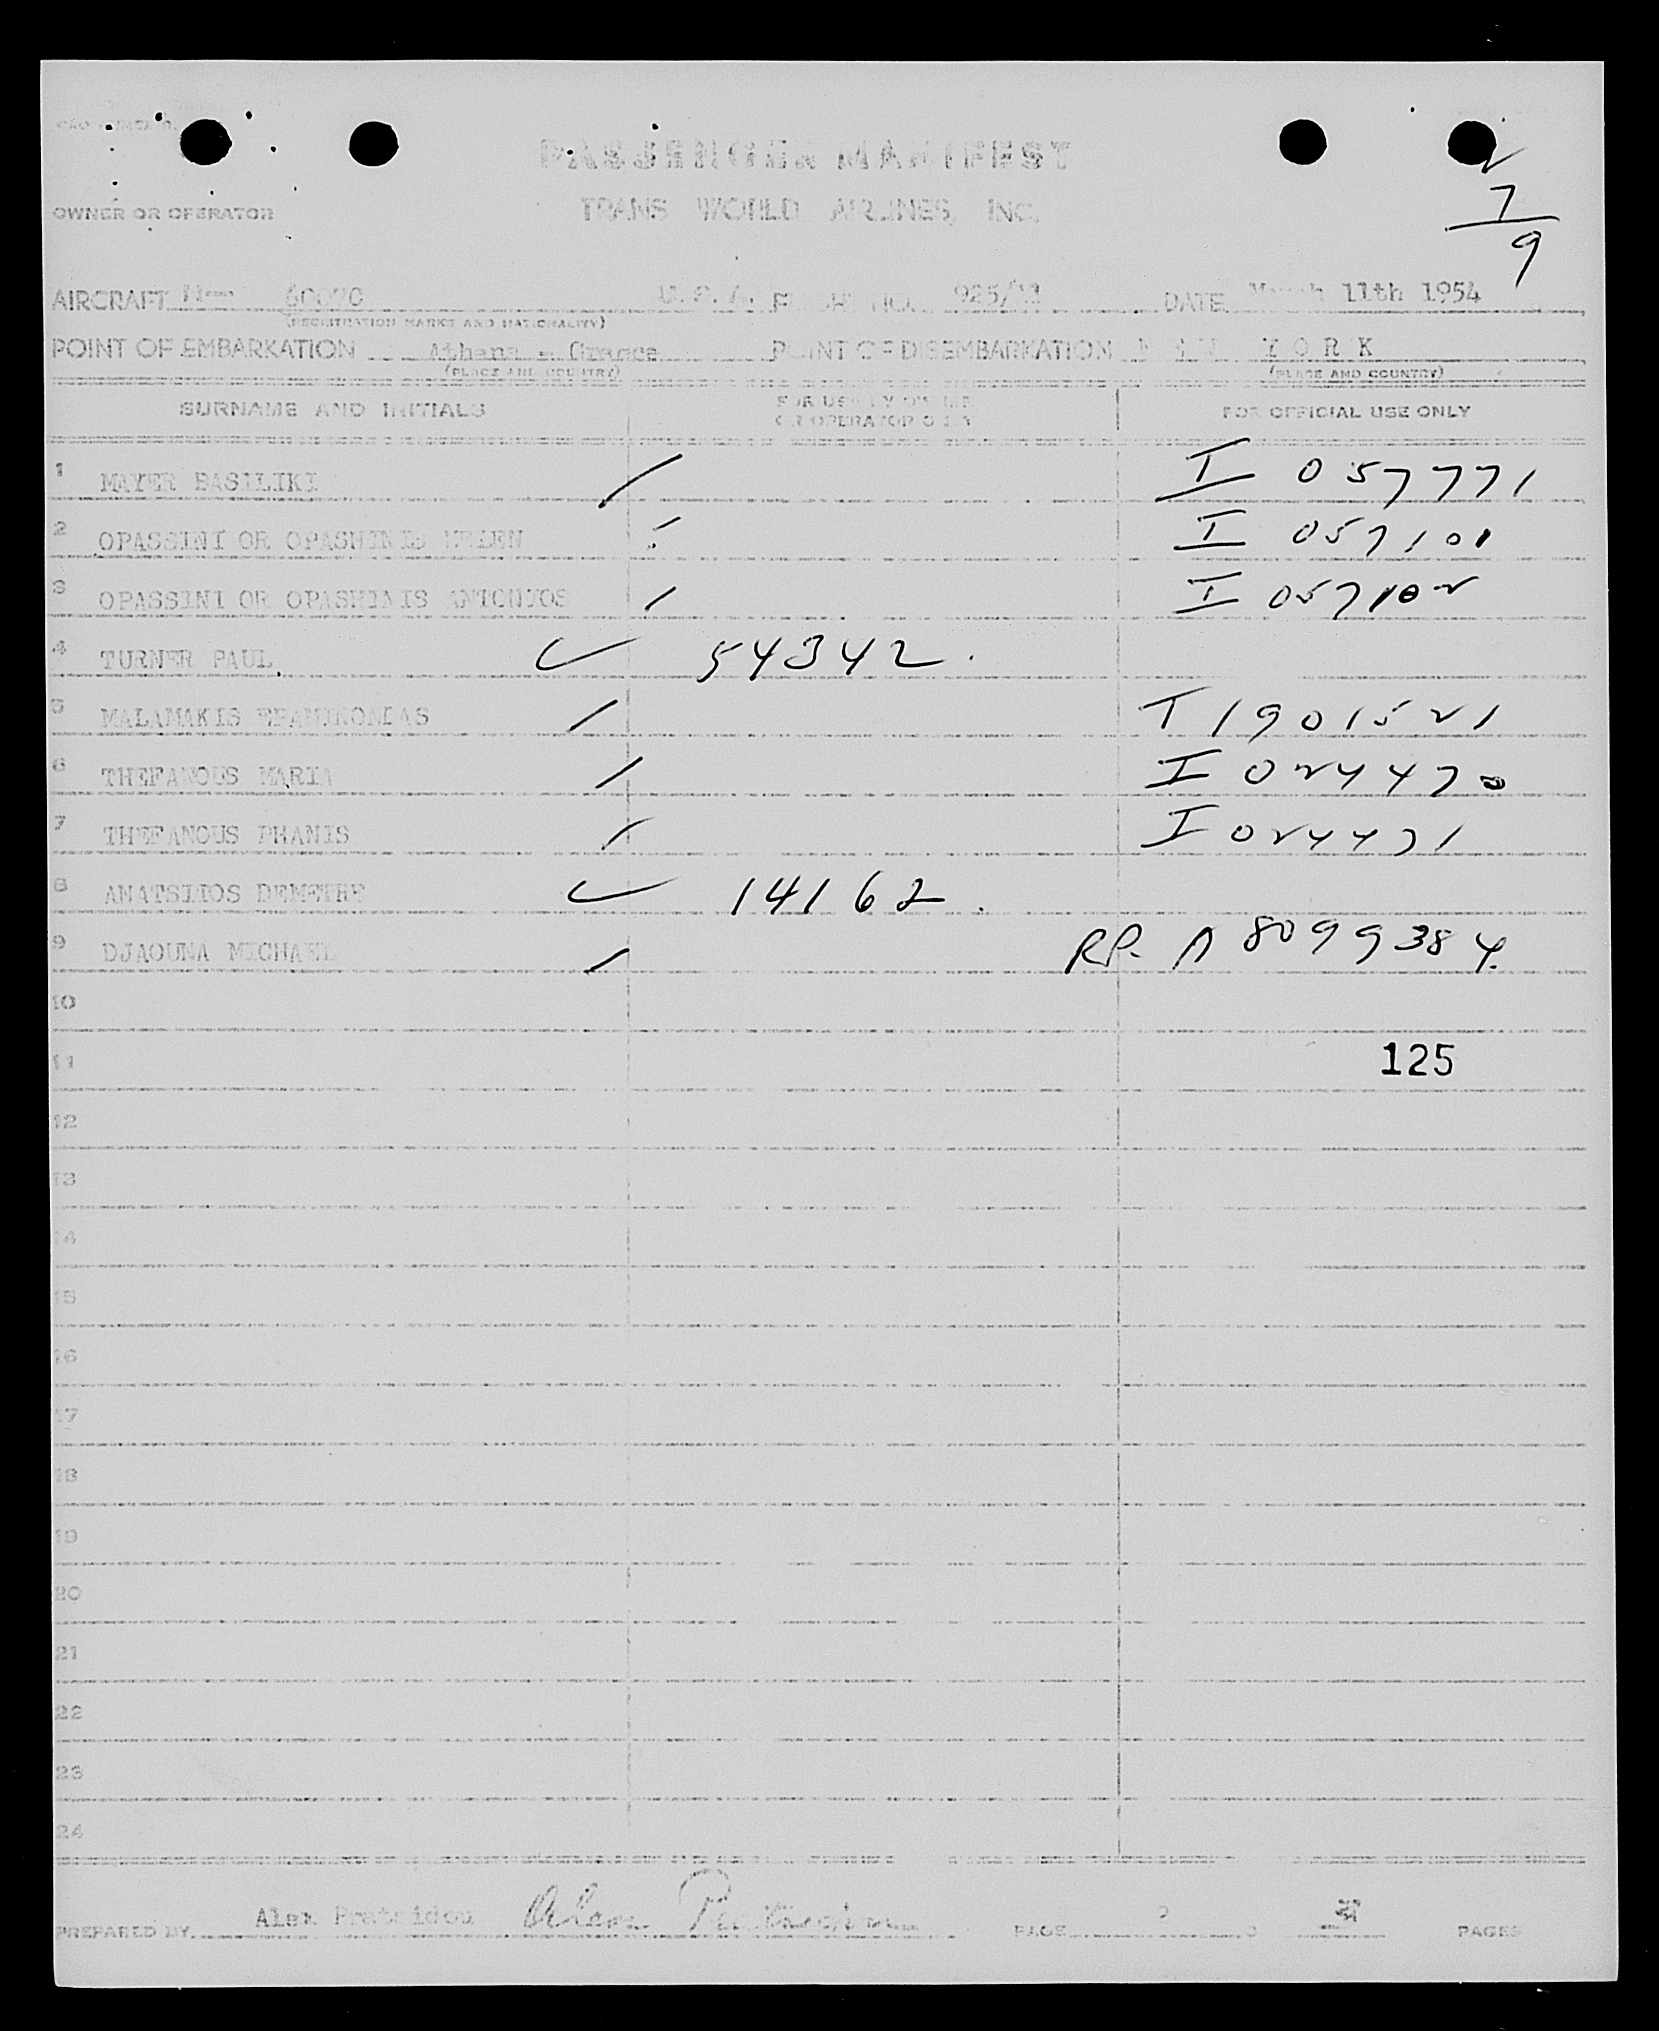 PASSENGER MANIFEST
OWNER OR OPERATOR TRANS WORLD AIRLINES, INC.
2
7
9
AIRCRAFT U.S.A. 925/11 DATE March 11th 1954
(REGISTRATION MARKS AND NATIONALITY)
POINT OF EMBARKATION Athens - Greece POINT OF DISEMBARKATION N E W Y O R K
(PLACE AND COUNTRY) (PLACE AND COUNTRY)
SURNAME AND INITIALS FOR USE BY OWNER OR OPERATOR ONLY FOR OFFICIAL USE ONLY
1 MAYER BASILIKI I 057771
2 OPASSINI OR OPASHINIS HELEN I 057101
3 OPASSINI OR OPASHINIS ANTONIOS I 057102
4 TURNER PAUL 54342.
5 MALAMAKIS EPAMINONDAS T 1901521
6 THEFANOUS MARIA I 024470
7 THEFANOUS PHANIS I 024471
8 ANATSITOS DEMETRE 14162.
9 DJAOUNA MICHAEL RP. A 8099384.
10
11 125
12
13
14
15
16
17
18
19
20
21
22
23
24
PREPARED BY Alex PAGE PAGES